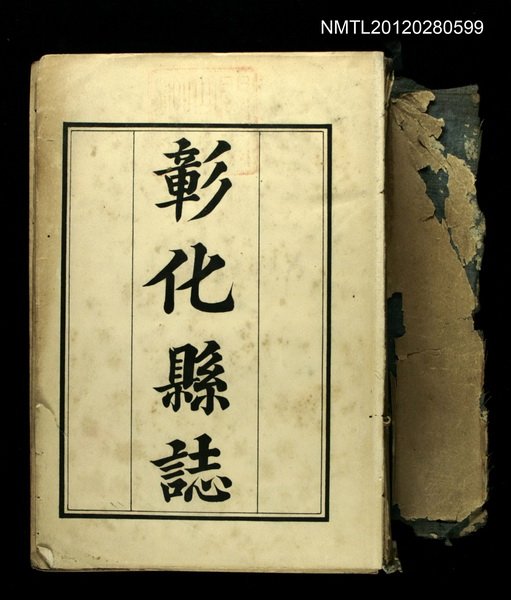 NMTL20120280599
彰化縣誌